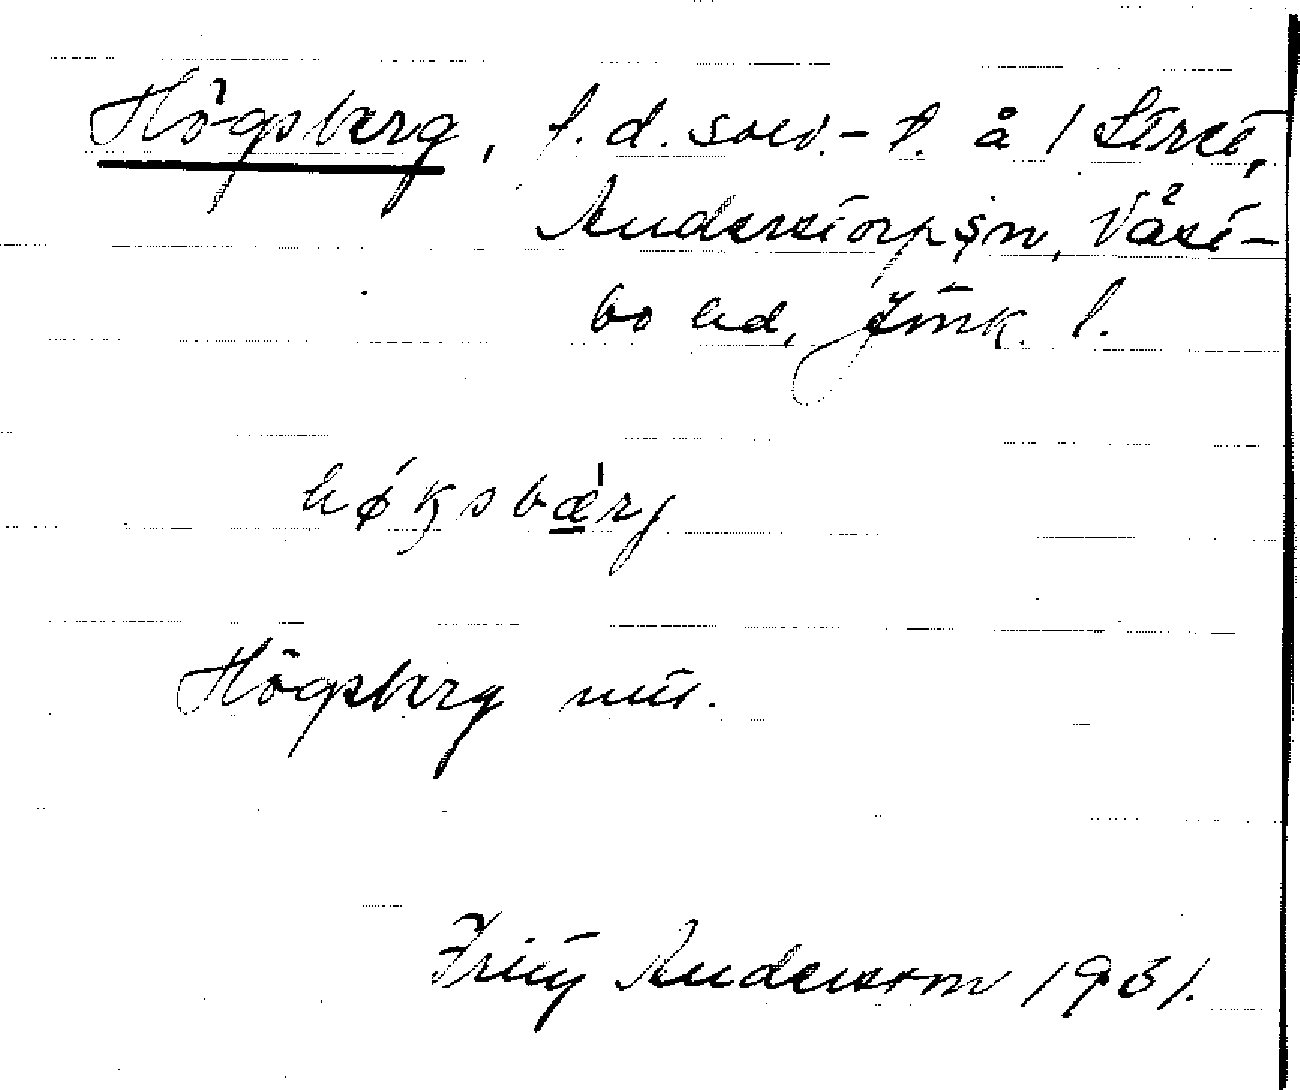 Högsberg, f.d. sold.-t. å 1 Stret,
Anderstorps sn, Väst-
bo hd, Jönk. l.
høksbærj
Högsberg mtl.
Fritz Andersson 1931.